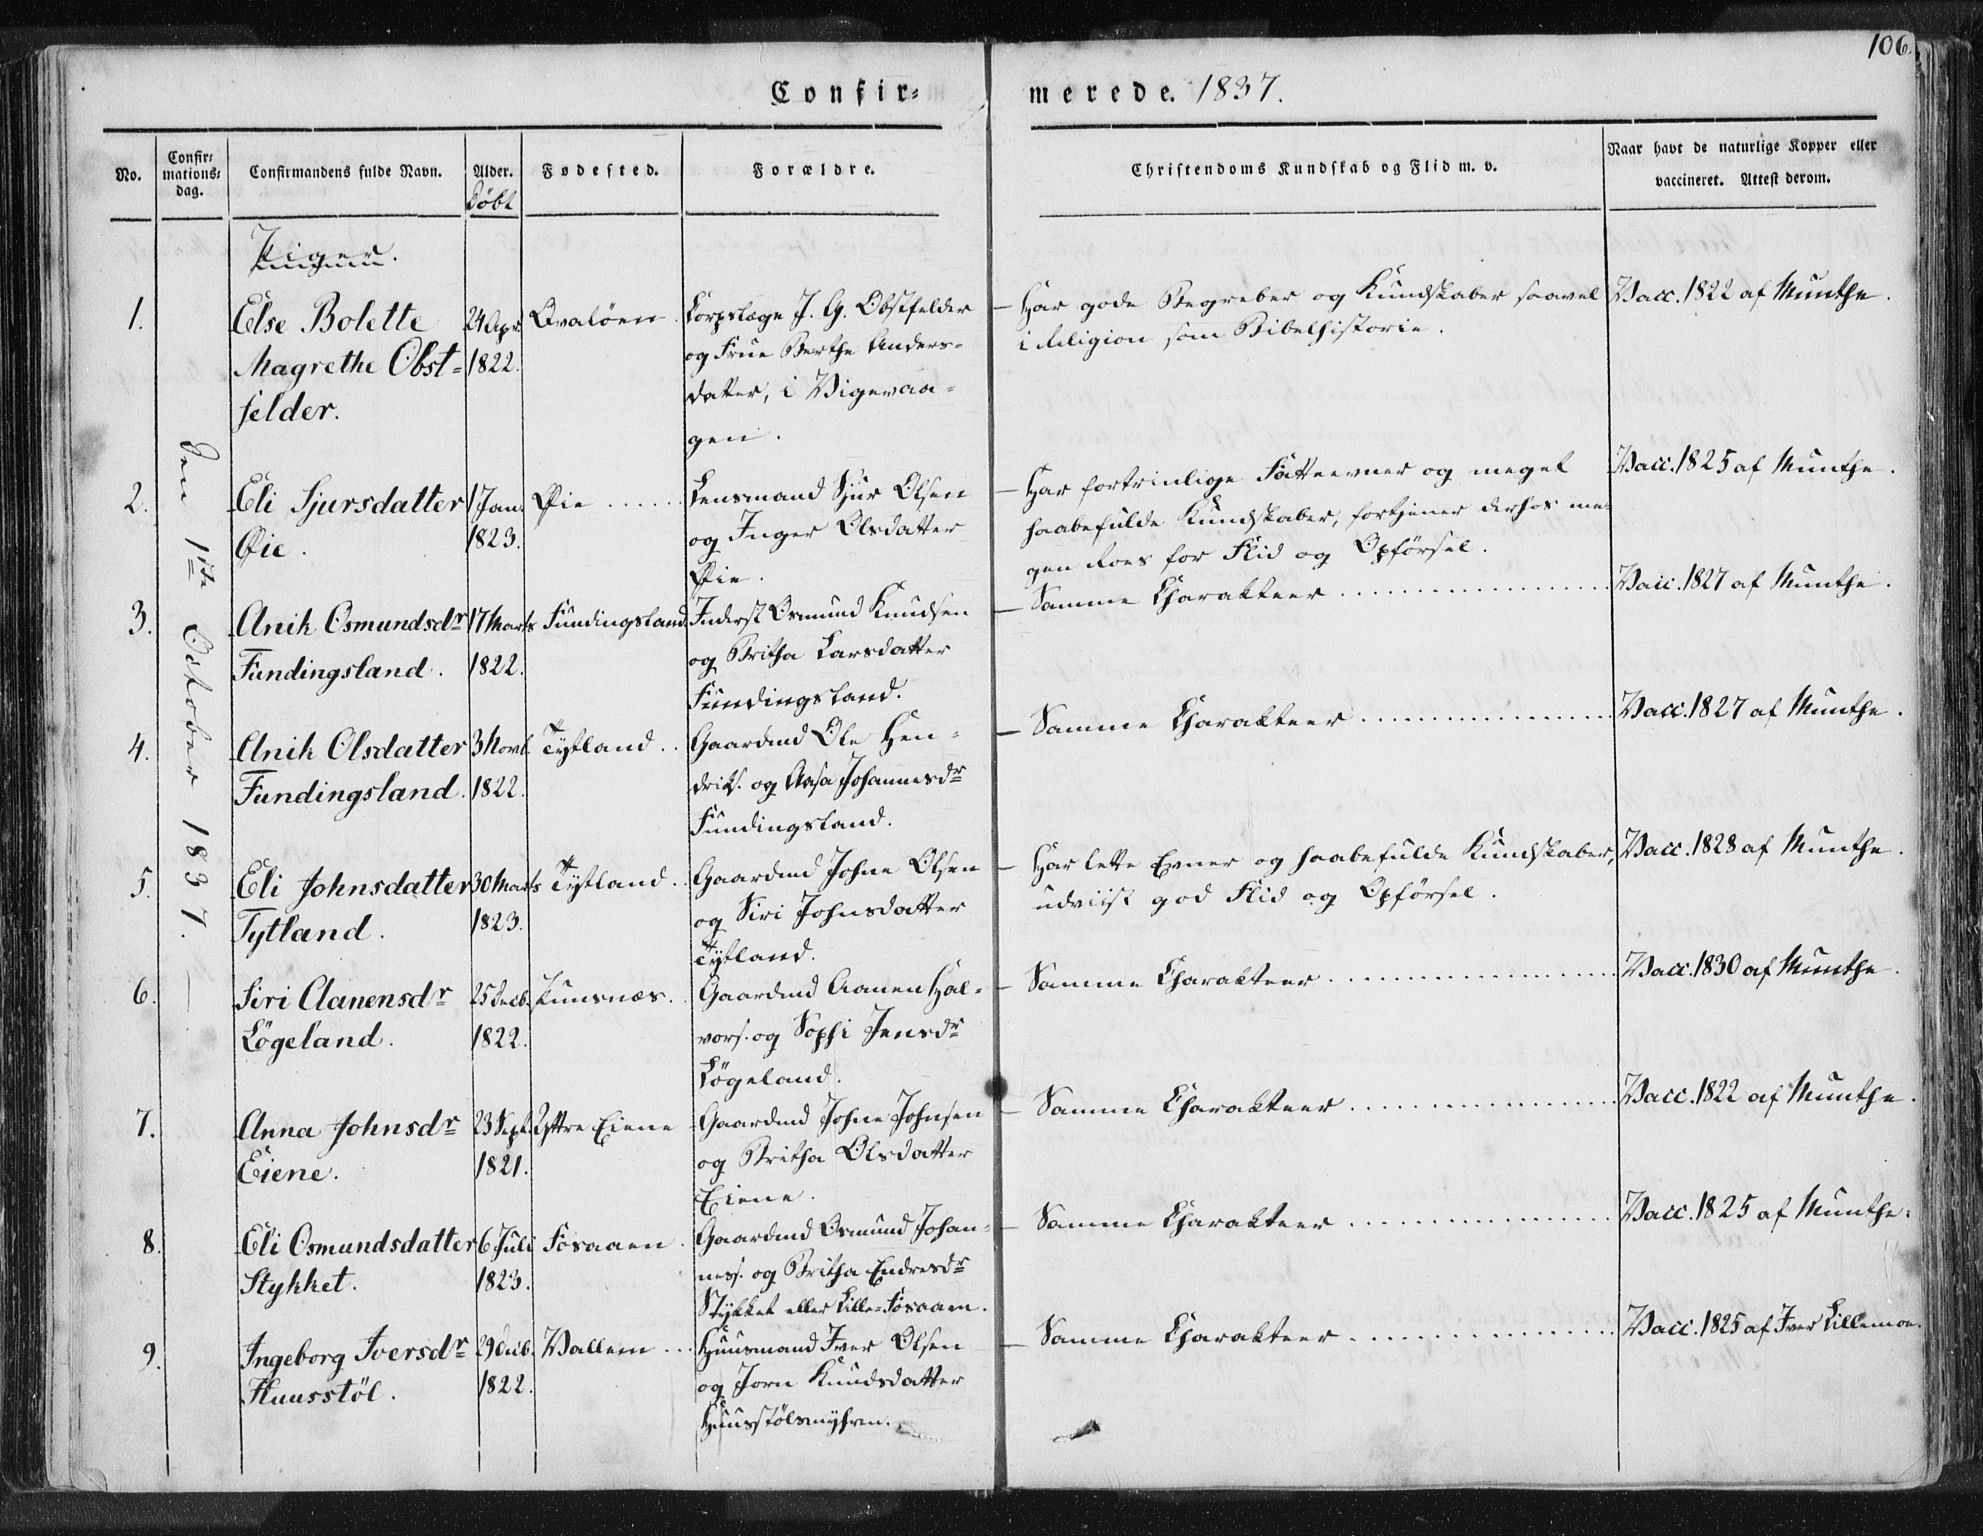 106.
Confir= merede. 1837.
No.
Confir=
mations=
dag.
Confirmandens fulde Navn.
Alder.
Döbt
Fødested.
Forældre.
Christendoms Kundskab og Flid m. v.
Naar havt de naturlige Kopper eller
vaccineret. Attest derom.
Den 1ste October 1837. —
Piger.
1.
Else Bolette
Magrethe Obst=
felder.
24 Apr.
1822.
Ovalöen.
Corpslæge J. G. Obstfelder
og Frue Berthe Anders=
datter, i Vigevaa=
gen.
— Har gode Begreber og Kundskaber saavel
i Religion som Bibelhistorie.
Vacc. 1822 af Munthe.
2.
Eli Sjursdatter
Øie.
1 Jan.
1823.
Øie .....
Lensmand Sjur Olsen
og Inger Olsdatter
Øie.
— Har fortrinlige Fatteevner og meget
haabefulde Kundskaber, fortjener derhos me=
gen Roes for Flid og Opförsel.
Vacc. 1825 af Munthe.
3.
Anik Osmundsdr
Fundingsland.
17 Marts
1822.
Fundingsland.
Inderst Osmund Knudsen
og Britha Larsdatter
Fundingsland.
— Samme Charakteer ..................
Vacc. 1827 af Munthe.
4.
Anik Olsdatter
Fundingsland.
3 Novb.
1822.
Tytland ..
Gaardmd Ole Hen=
driks. og Aasa Johannesdr
Fundingsland.
— Samme Charakteer .................
Vacc. 1827 af Munthe.
5.
Eli Johnsdatter
Tytland.
30 Marts
1823.
Tytland ..
Gaardmd Johne Olsen
og Siri Johnsdatter
Tytland.
— Har lette Evner og haabefulde Kundskaber,
udviist god Flid og Opförsel.
Vacc. 1828 af Munthe.
6.
Siri Aanensdr
Lögeland.
25 Decb.
1822.
Gaardmd Aanen Hal=
vors. og Sophi Jensdr
Lögeland.
— Samme Charakteer ...................
Vacc. 1830 af Munthe.
7.
Anna Johnsdr
Eiene.
23 Sept.
1821.
Yttre Eiene
Gaardmd Johne Johnsen
og Britha Olsdatter
Eiene.
— Samme Charakteer .................
Vacc. 1822 af Munthe.
8.
Eli Osmundsdatter
Stykket.
6 Juli
1823.
Fosaaen.
Gaardmd Osmund Johan=
nes. og Britha Endresdr
Stykket eller Lille=Fosaaen.
— Samme Charakteer .................
Vacc. 1825 af Munthe.
9.
Ingeborg Iversdr
Huusstöl.
29 Decb.
1822.
Vallem ...
Huusmand Iver Olsen
og Jorn Knudsdatter
Huusstölsmyhren.
— Samme Charakteer .................
Vacc. 1825 af Iver Lillemoe.